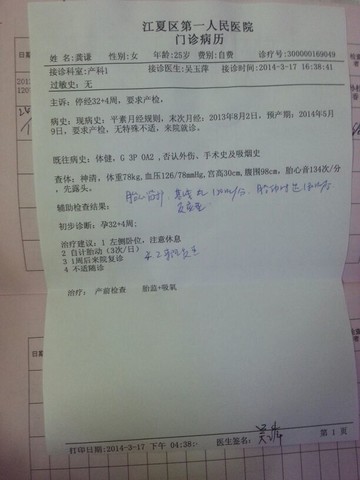 江夏区第一人民医院
门诊病历
姓名：龚谦 性别：女 年龄：25岁 费别：自费 诊疗号：300000169049
接诊科室：产科1 接诊医生：吴玉萍 接诊时间：2014-3-17 16:38:41
过敏史：无
主诉：停经32+4周，要求产检，
病史：现病史：平素月经规则，末次月经：2013年8月2日，预产期：2014年5月
9日，要求产检，无特殊不适，来院就诊。
既往病史：体健，G 3P 0A2，否认外伤、手术史及吸烟史
查体：神清，体重78kg，血压126/78mmHg，宫高30cm，腹围98cm，胎心音134次/分
，先露头，
辅助检查结果：
初步诊断：孕32+4周：
治疗建议：1 左侧卧位，注意休息
2 自计胎动（3次/日）
3 1周后来院复诊
4 不适随诊
治疗： 产前检查 胎监+吸氧
第 1 页
打印日期：2014-3-17 下午 04:38: 医生签名：